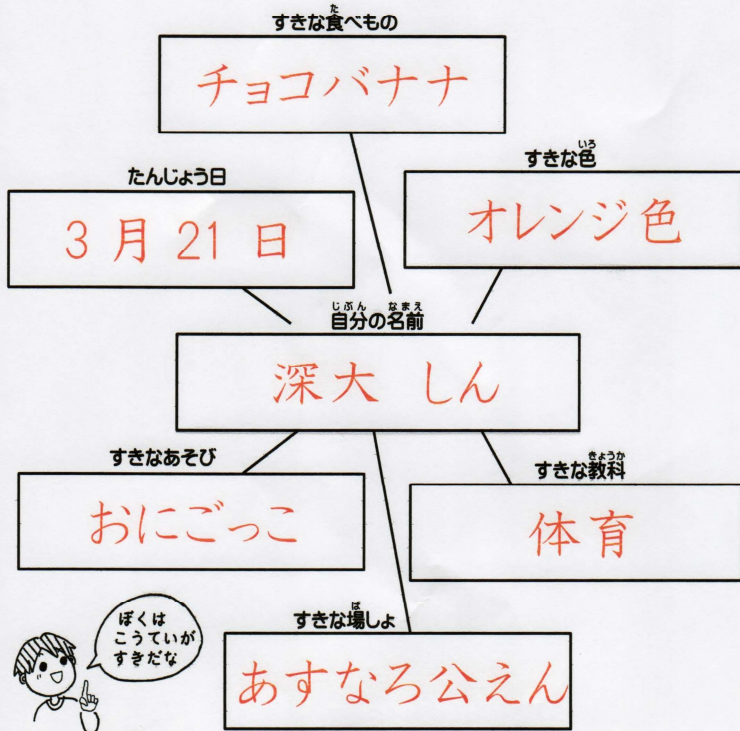 すきな食べもの
チョコバナナ
たんじょう日
3月21日
すきな色
オレンジ色
自分の名前
深大 しん
すきなあそび
おにごっこ
すきな教科
体育
すきな場しょ
あすなろ公えん
ぼくは
こうていが
すきだな